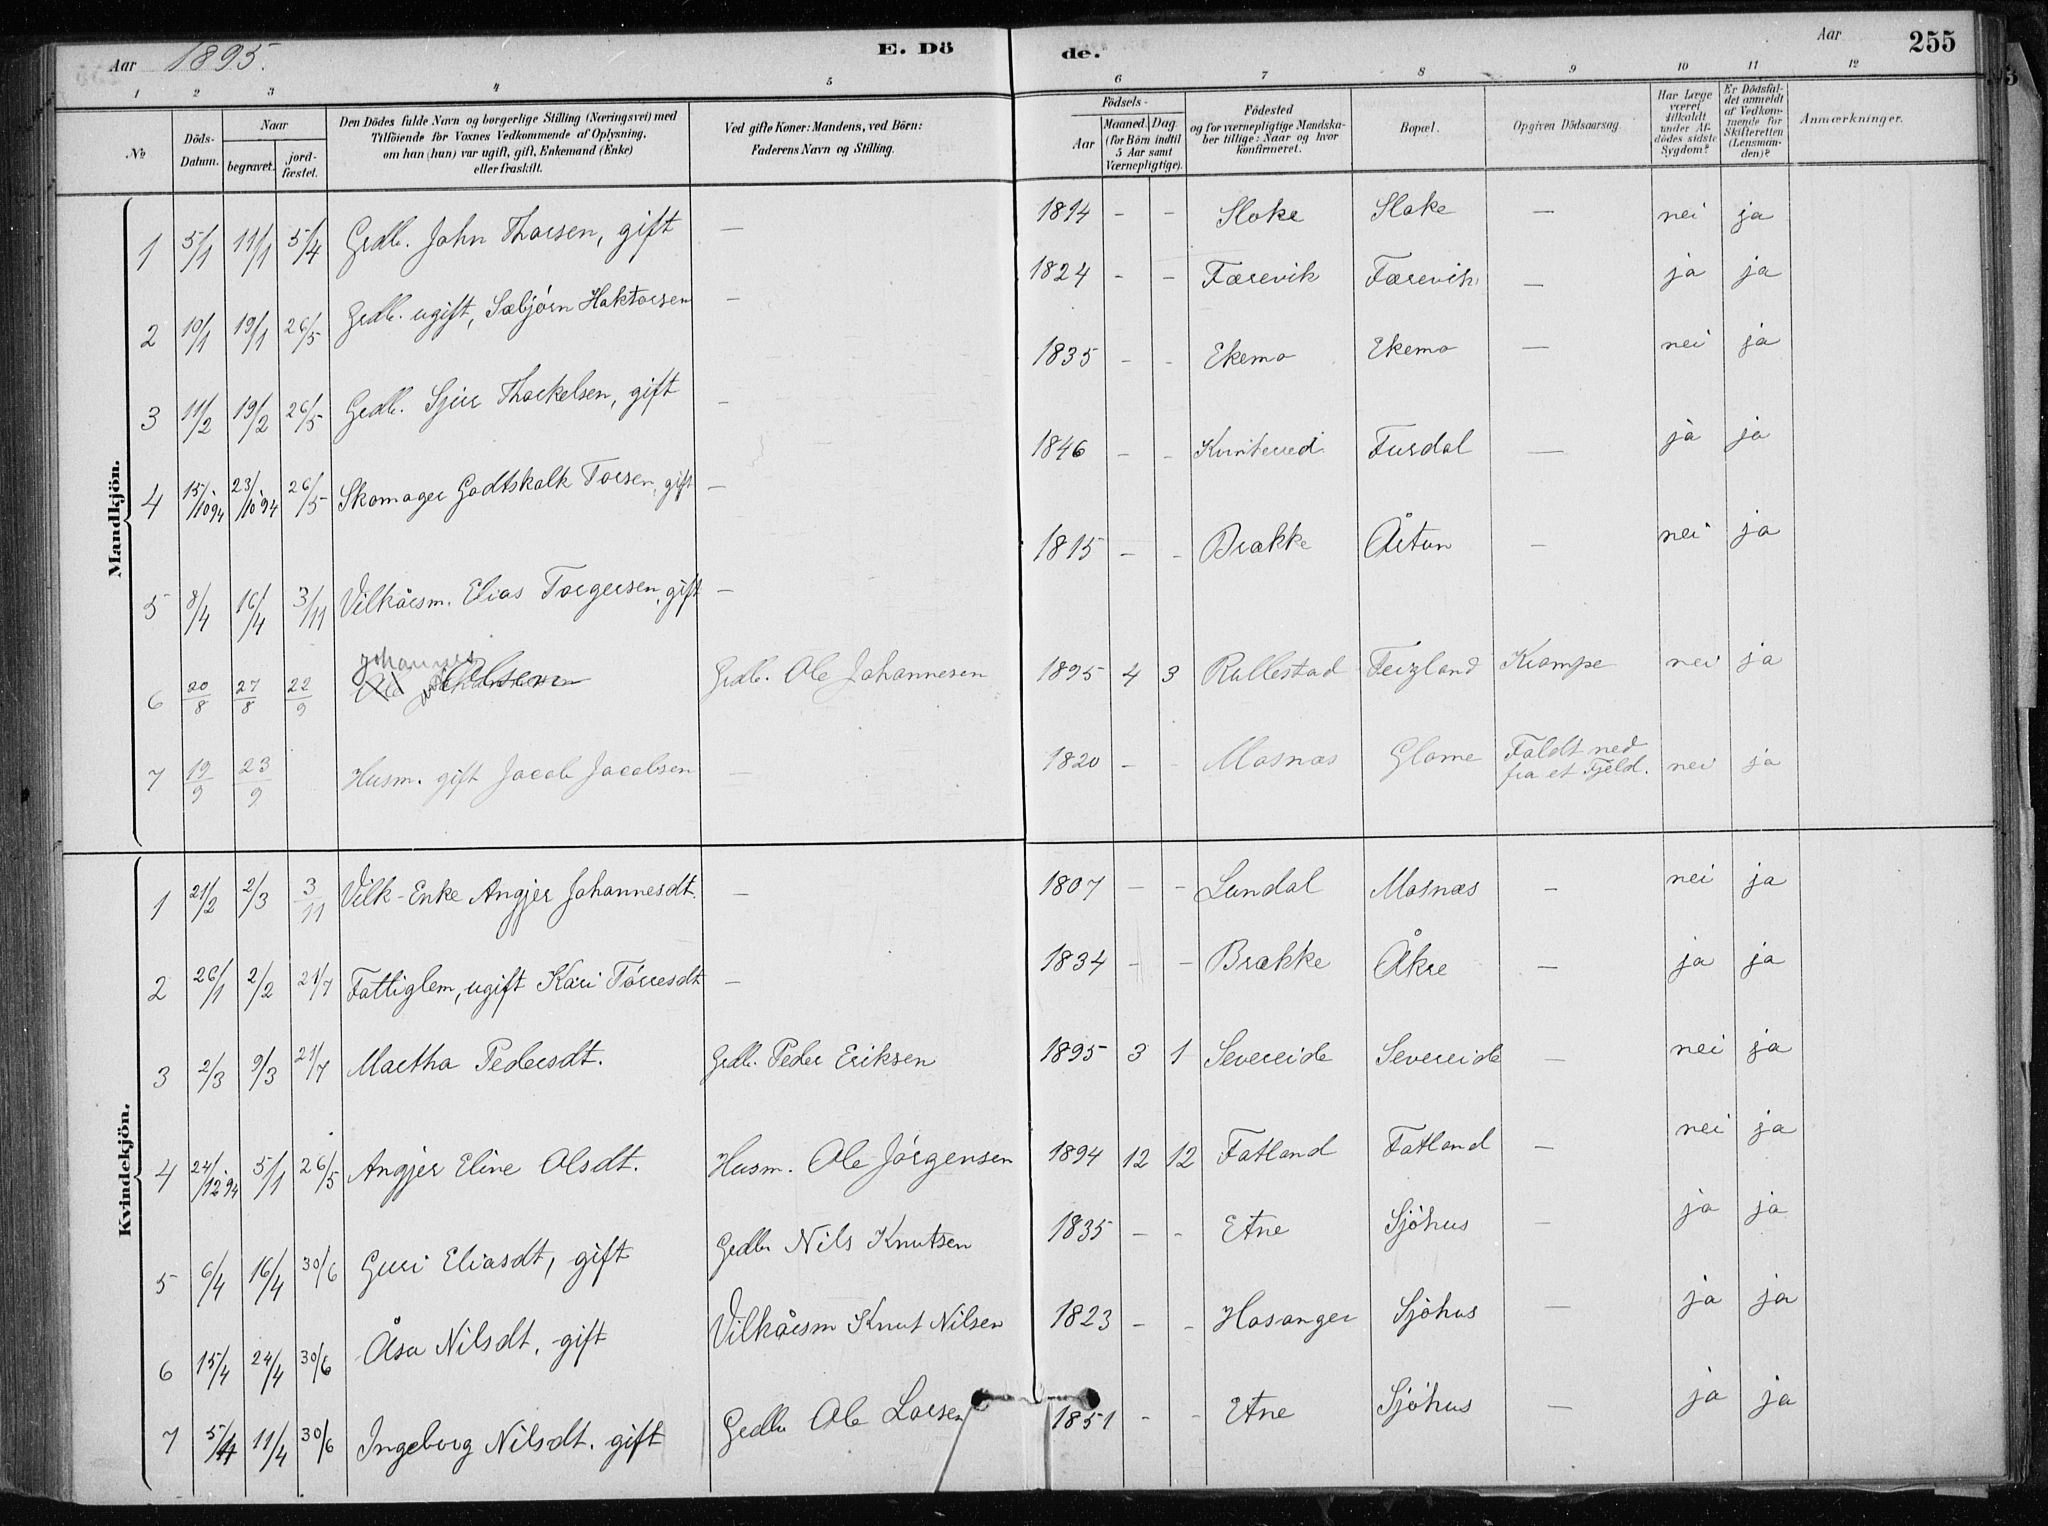 Aar 1895. E. Döde. Aar 255
1 2 3 4 5 6 7 8 9 10 11 12
No
Döds-Datum.
Naar
begravet. jordfæstet.
Den Dödes fulde Navn og borgerlige Stilling (Næringsvei) med
Tilföiende for Voxnes Vedkommende af Oplysning,
om han (hun) var ugift, gift, Enkemand (Enke)
eller fraskilt.
Ved gifte Koner: Mandens, ved Börn:
Faderens Navn og Stilling.
Födsels-
Aar
Maaned. Dag
(for Börn indtil
5 Aar samt
Værnepligtige).
Födested
og for værnepligtige Mandska-
ber tillige: Naar og hvor
konfirmeret.
Bopæl.
Opgiven Dödsaarsag.
Har Læge
været
tilkaldt
under Af-
dödes sidste
Sygdom?
Er Dödsfal-
det anmeldt
af Vedkom-
mende for
Skifteretten
(Lensman-
den)?
Anmærkninger.
Mandkjön.
1 5/1 11/1 5/4 Grdb. John Thorsen, gift — 1814 - - Sloke Sloke — nei ja
2 10/1 19/1 26/5 Grdb. ugift, Sæbjörn Haktorsen — 1824 - - Færevik Færevik — ja ja
3 11/2 19/2 26/5 Grdb. Sjur Thorkelsen, gift — 1835 - - Ekemo Ekemo — nei ja
4 15/10 94 23/10 94 26/5 Skomager Godtskalk Torsen, gift — 1846 - - Fusdal — ja ja
5 8/4 16/4 3/11 Vilkårsm. Elias Torgersen, gift — 1815 - - Brække Årtun — nei ja
6 20/8 27/8 22/9 Johannes Olsen Grdb. Ole Johannesen 1895 4 3 Rullestad Krampe nei ja
7 19/9 23/9 Husm. gift Jacob Jacobsen — 1820 - - Mosnæs Glome Faldt ned
fra et Fjeld. nei ja
Kvindekjön.
1 21/2 2/3 3/11 Vilk-Enke Angjer Johannesdt. — 1807 - - Lundal Mosnæs — nei ja
2 26/1 2/2 21/7 Fattiglem, ugift Kari Törresdt — 1834 - - Brække Åkre — ja ja
3 2/3 9/3 21/7 Martha Pedersdt. Grdb. Peder Eriksen 1895 3 1 Severeide Severeide — nei ja
4 24/12 94 5/1 26/5 Angjer Eline Olsdt. Husm. Ole Jörgensen 1894 12 12 Fatland Fatland — nei ja
5 6/4 16/4 30/6 Guri Eliasdt, gift Grdbr Nils Knutsen 1835 - - Etne Sjöhus — ja ja
6 15/4 24/4 30/6 Åsa Nilsdt, gift Vilkårsm Knut Nilsen 1823 - - Hosanger Sjöhus — ja ja
7 5/4 11/4 30/6 Ingeborg Nilsdt. gift Grdbr Ole Larsen 1851 - - Etne Sjöhus — ja ja